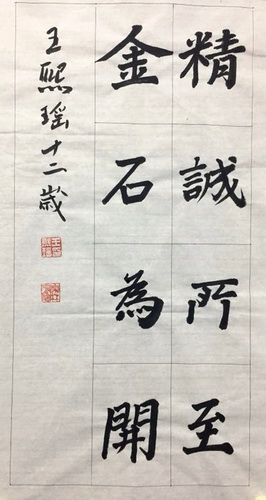 精誠所至
金石為開
王熙瑶十二歲